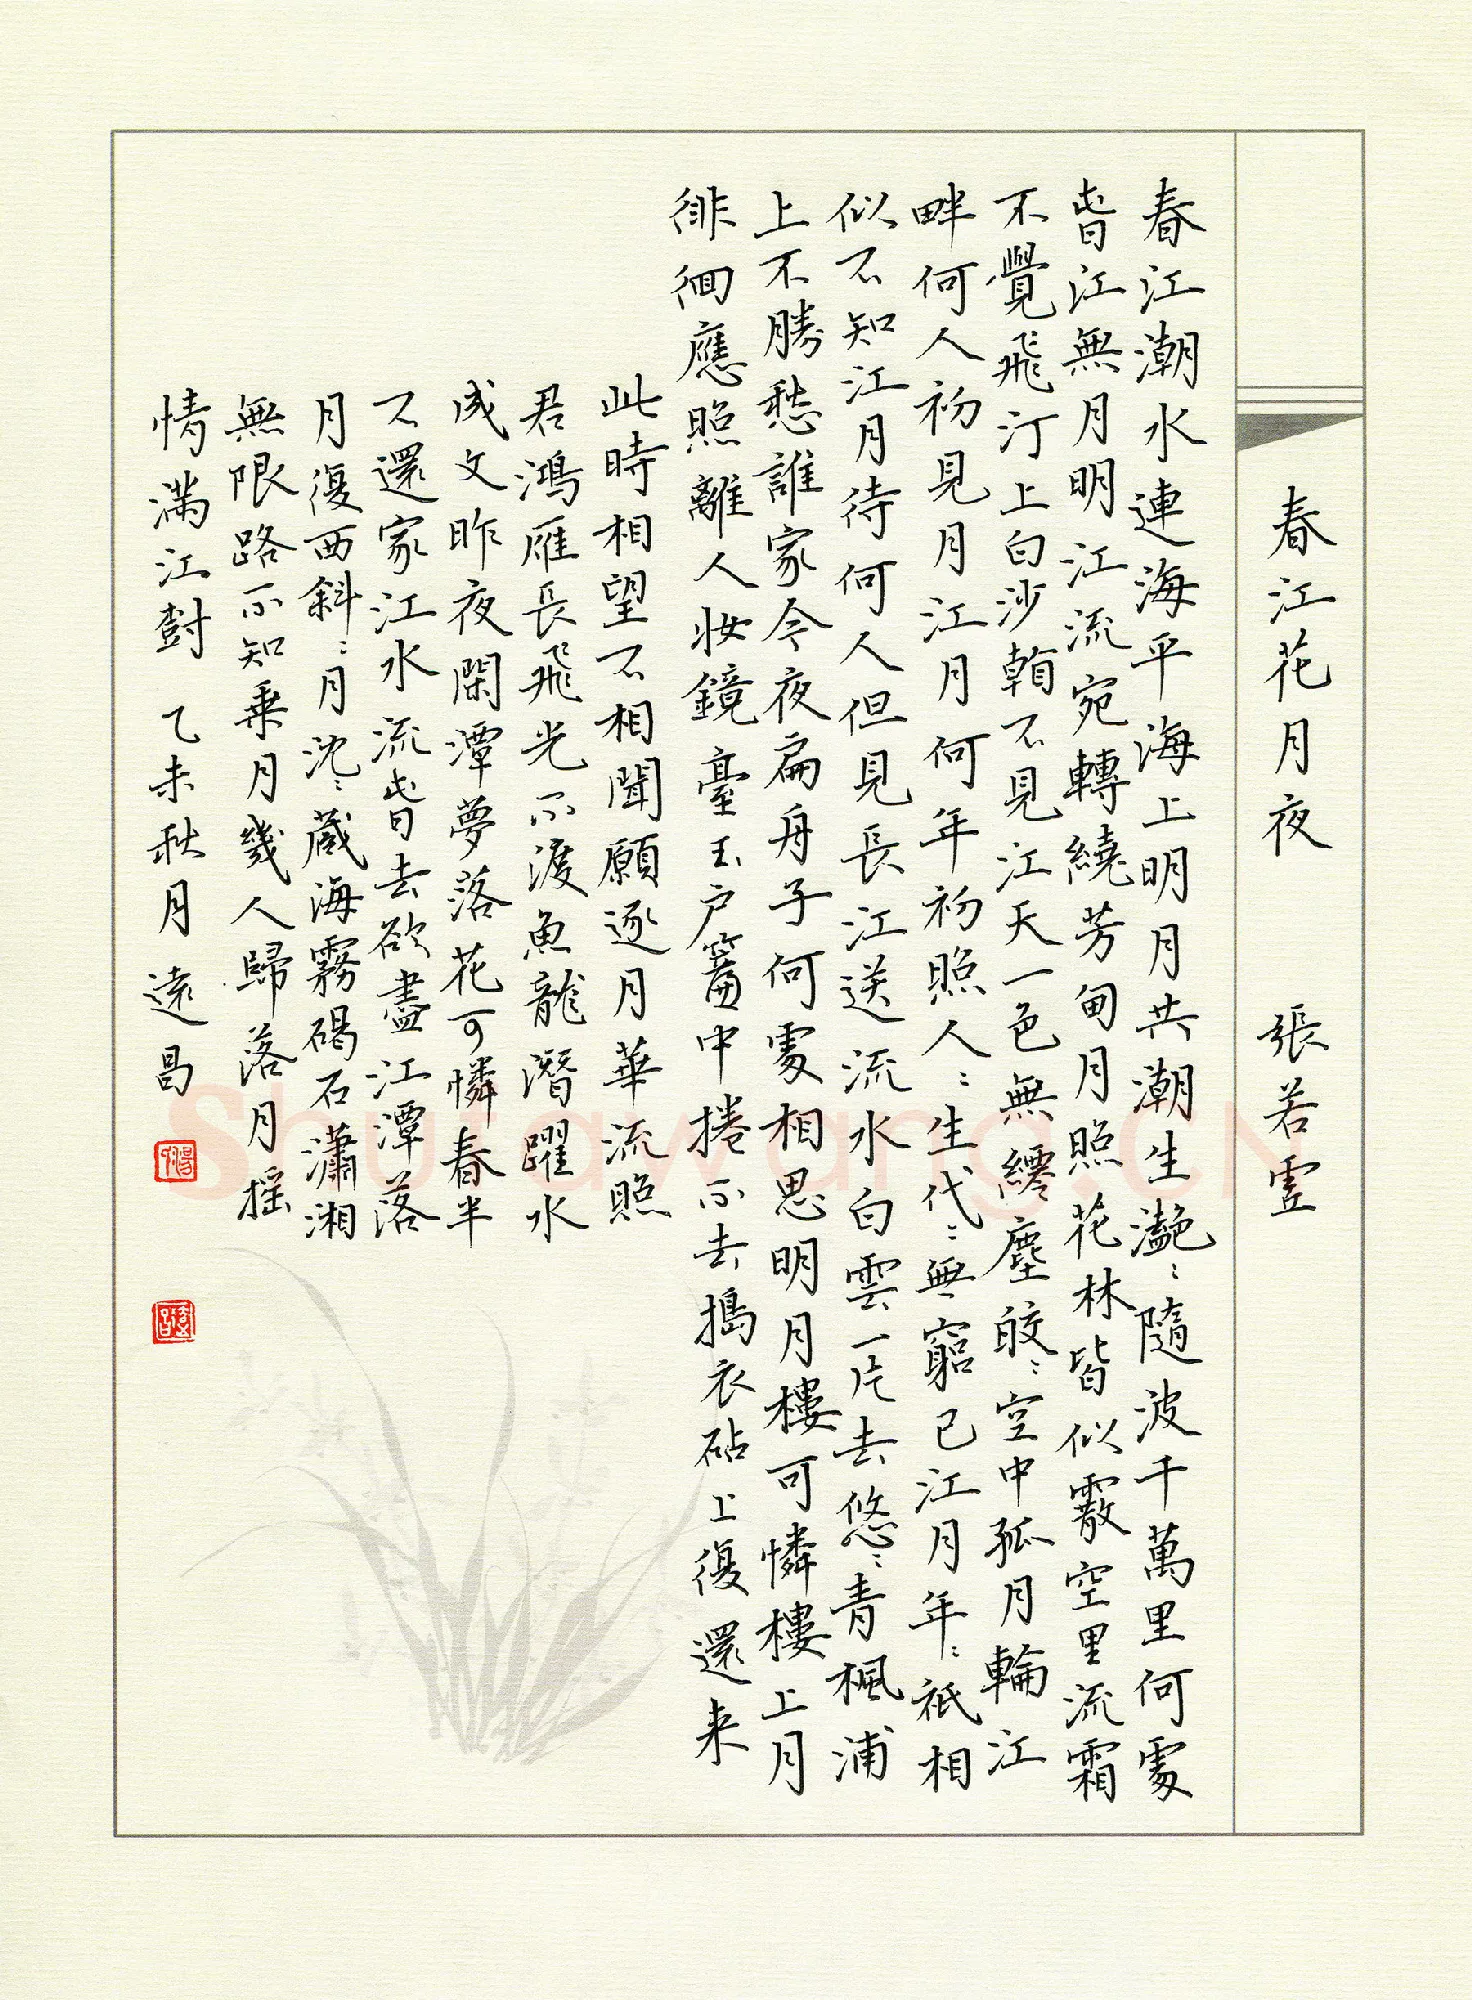 春江花月夜 張若虛
春江潮水連海平海上明月共潮生灧〻隨波千萬里何處
旹江無月明江流宛轉繞芳甸月照花林皆似霰空里流霜
不覺飛汀上白沙看不見江天一色無纖塵皎〻空中孤月輪江
畔何人初見月江月何年初照人〻生代〻無窮已江月年〻祇相
似不知江月待何人但見長江送流水白雲一片去悠〻青楓浦
上不勝愁誰家今夜扁舟子何處相思明月樓可憐樓上月
徘徊應照離人妝鏡臺玉户簾中捲不去搗衣砧上復還来
此時相望不相聞願逐月華流照
君鴻雁長飛光不渡魚龍潛躍水
成文昨夜閑潭夢落花可憐春半
不還家江水流旹去欲盡江潭落
月復西斜〻月沈〻藏海霧碣石瀟湘
無限路不知乗月幾人歸落月摇
情滿江樹 乙未秋月 遠昌
Shufawang.CN